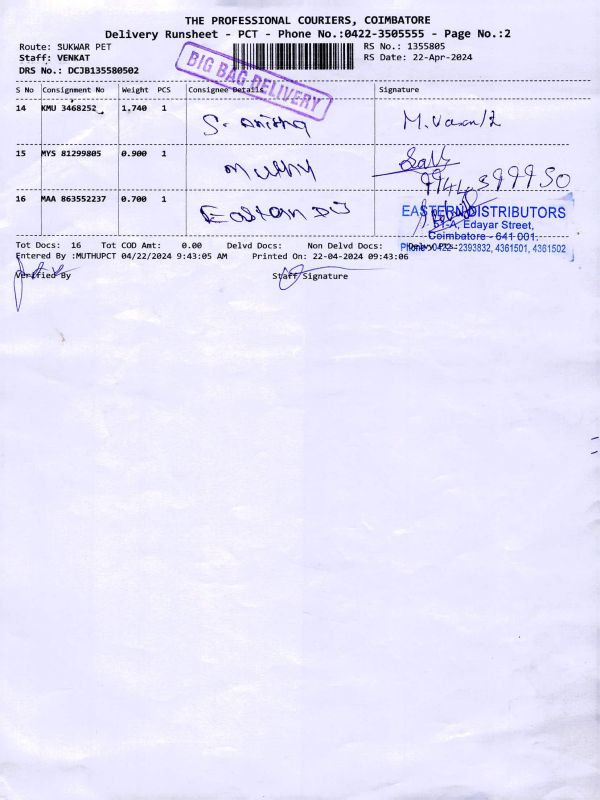 THE PROFESSIONAL COURIERS, COIMBATORE
Delivery Runsheet - PCT - Phone No.:0422-3505555 - Page No.:2
Route: SUKWAR PET RS No.: 1355805
Staff: VENKAT RS Date: 22-Apr-2024
DRS No.: DCJB135580502
BIG BAG DELIVERY
S No Consignment No Weight PCS Consignee Details Signature
14 KMU 3468252 1.740 1 S. anitha
15 MYS 81299805 0.900 1 muthy
16 MAA 863552237 0.700 1 Eastan DIS
EASTERN DISTRIBUTORS
51-A, Edayar Street,
Coimbatore - 641 001.
Phone: 0422-2393832, 4361501, 4361502
Tot Docs: 16 Tot COD Amt: 0.00 Delvd Docs: Non Delvd Docs:
Entered By :MUTHUPCT 04/22/2024 9:43:05 AM Printed On: 22-04-2024 09:43:06
Verified By Staff Signature